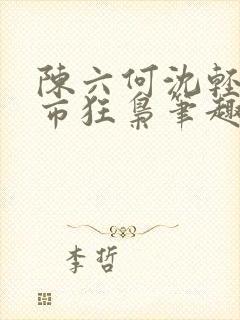 陳六何沈輕
市狂梟筆趣
李哲